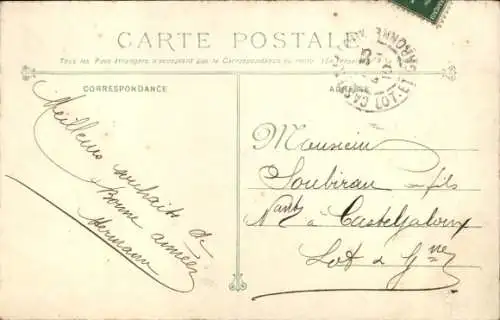 CARTE POSTALE
Tous les Pays étrangers n'acceptent pas la Correspondance au recto
CORRESPONDANCE
ADRESSE
LOT-ET-GARONNE
Meilleurs souhaits de
Bonne année
Hermann
Monsieur
Soubiran fils
à Casteljaloux
Lot & Gne